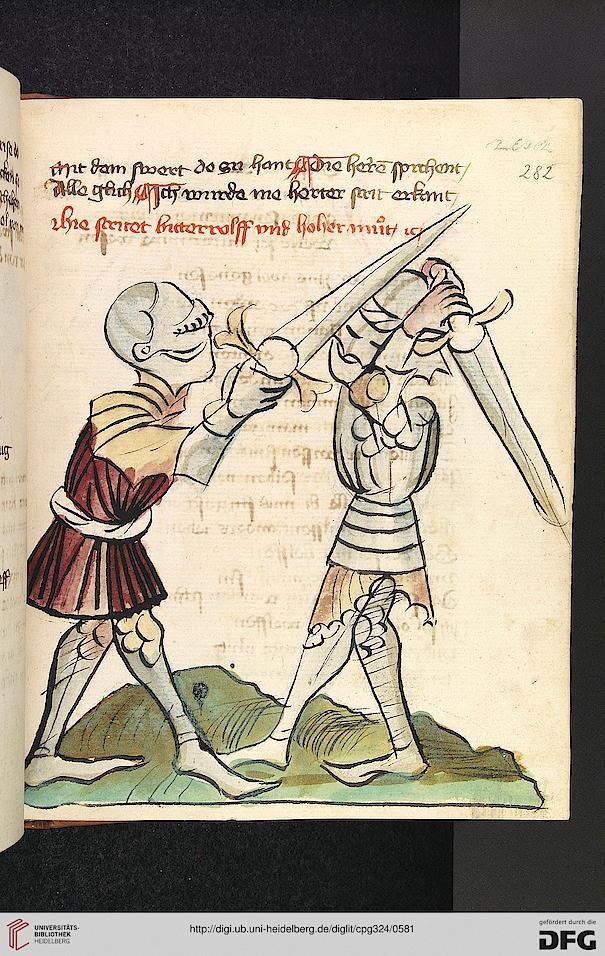 mit dem swert do zu hant Die herē sprchent
Alle glich Ich wurde nie herter strit erkant
Hie stritet bitterolff und hoher muͦt ꝛc
282
UNIVERSITÄTS-
BIBLIOTHEK
HEIDELBERG
http://digi.ub.uni-heidelberg.de/diglit/cpg324/0581
gefördert durch die
DFG